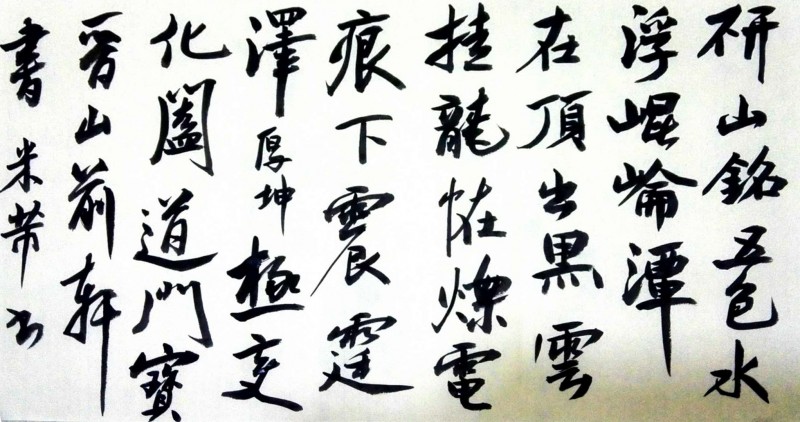 研山銘五色水
浮崐崘潭
在頂出黒雲
挂龍恠爍電
痕下震霆
澤厚坤極變
化闔道門寶
晉山前軒
書米芾書